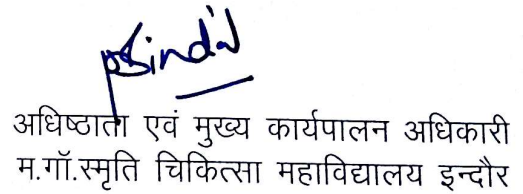 अधिष्ठाता एवं मुख्य कार्यपालन अधिकारी
म.गॉ.स्मृति चिकित्सा महाविद्यालय इन्दौर